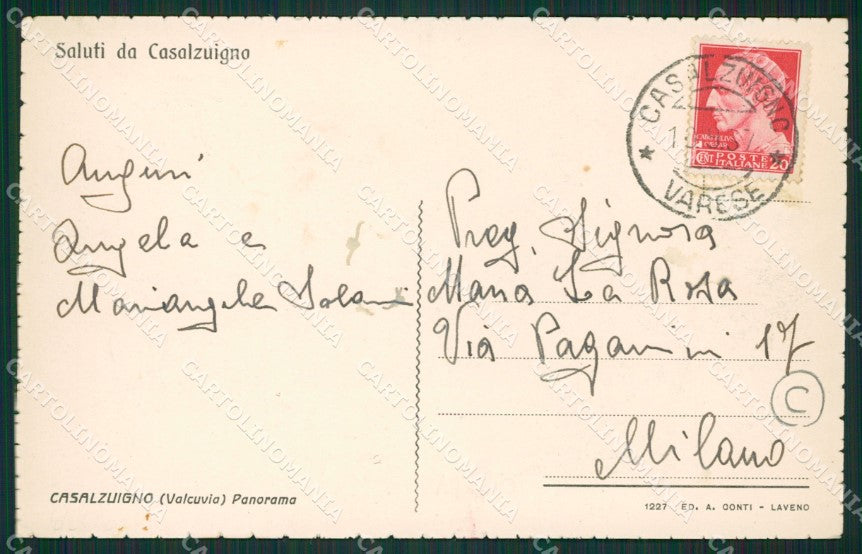 Saluti da Casalzuigno
CASALZUIGNO
VARESE
POSTE
CENT ITALIANE 20
Auguri
Angela e
Mariangela Solari
Preg. Signora
Maria La Rosa
Via Paganini 17
C
Milano
CASALZUIGNO (Valcuvia) Panorama
1227 ED. A. CONTI - LAVENO
CARTOLINOMANIA